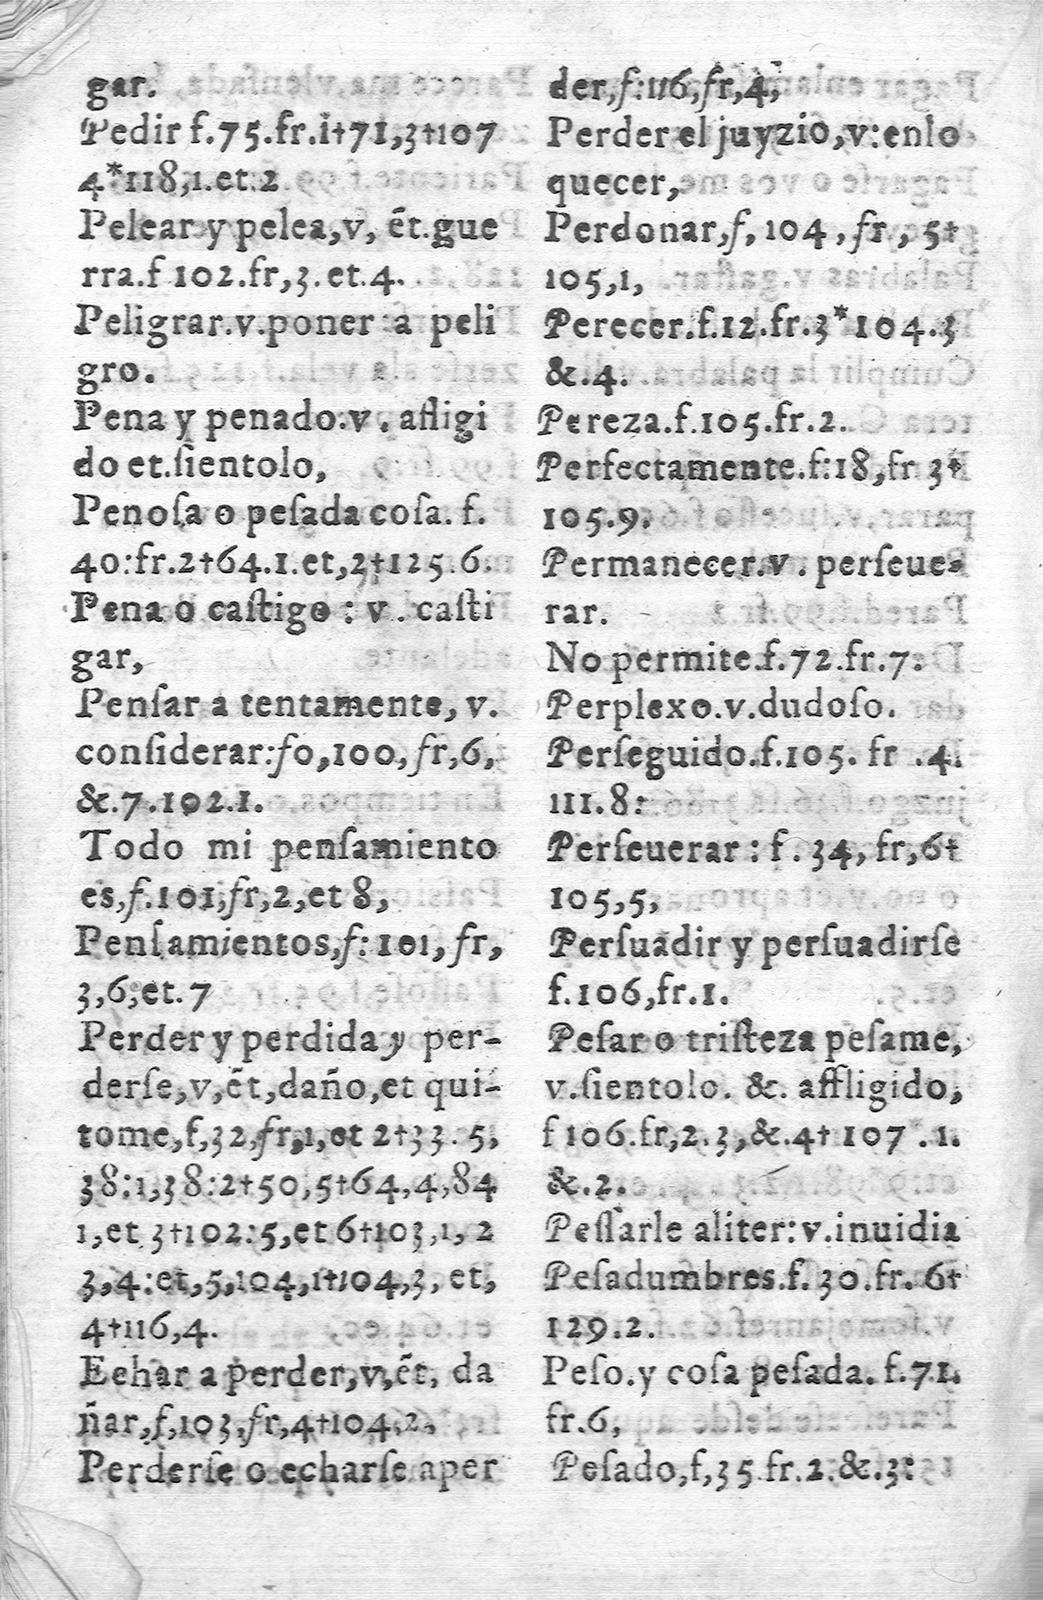 gar.
Pedir f.75.fr.1†71,3†107
4*118,1.et.2
Pelear y pelea,v, ēt.gue
rra.f 102.fr,3.et.4.
Peligrar.v.poner a peli
gro.
Pena y penado.v. afligi
do et.ſientolo,
Penoſa o peſada coſa. f.
40:fr.2†64.1.et,2†125.6.
Pena o caſtigo : v . caſti
gar,
Penſar a tentamente, v.
conſiderar:fo,100,fr,6,
&.7.102.1.
Todo mi penſamiento
es,f.101,fr,2,et 8,
Penſamientos,f:101,fr,
3,6,et.7
Perder y perdida y per-
derſe,v,ēt,daño,et qui-
tome,f,32,fr,1,et 2†33.5,
38:1,38:2†50,5†64,4,84
1,et 3†102:5,et 6†103,1,2
3,4:et,5,104,1†104,3, et,
4†116,4.
Echar a perder,v,ēt, da
ñar,f,103,fr,4†104,2,
Perderſe o echarſe a per
der,f:116,fr,4,
Perder el juyzio,v:enlo
quecer,
Perdonar,f, 104 , fr , 5†
105,1,
Perecer.f.12.fr.3*104.3
&.4.
Pereza.f.105.fr.2.
Perfectamente.f:18,fr 3†
105.9.
Permanecer.v . perſeue-
rar.
No permite.f.72.fr.7.
Perplexo.v.dudoſo.
Perſeguido.f.105. fr .4.
111.8:
Perſeuerar : f. 34, fr,6†
105,5,
Perſuadir y perſuadirſe
f.106,fr.1.
Peſar o triſteza peſame,
v.ſientolo. &. affligido,
f 106.fr,2.3,&.4† 107 .1.
&.2.
Peſſarle aliter:v.inuidia
Peſadumbres.f.30.fr. 6†
129.2.
Peſo.y coſa peſada. f.71.
fr.6,
Peſado,f,35.fr.2.&.3: